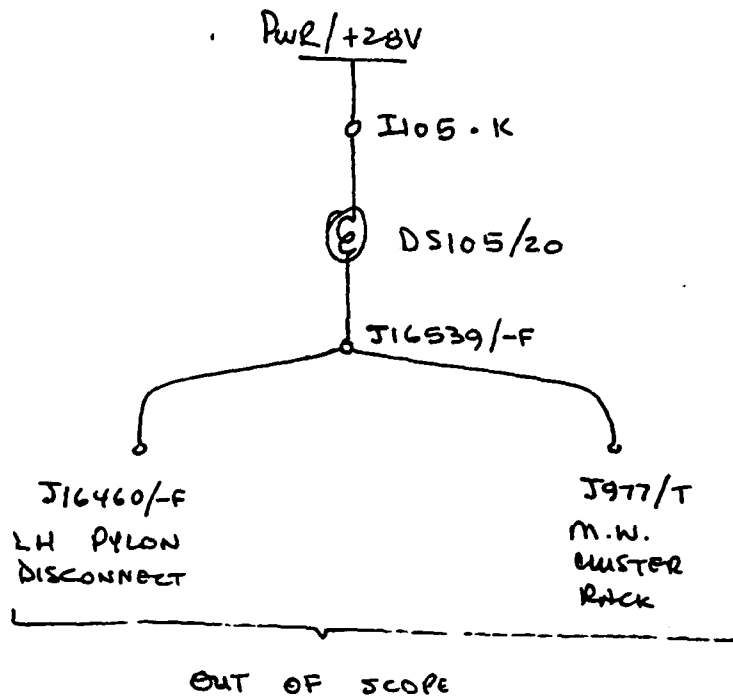 PWR/+28V
I105.K
DS105/20
J16539/-F
J16460/-F
LH PYLON
DISCONNECT
J977/T
M.W.
CLUSTER
RACK
OUT OF SCOPE